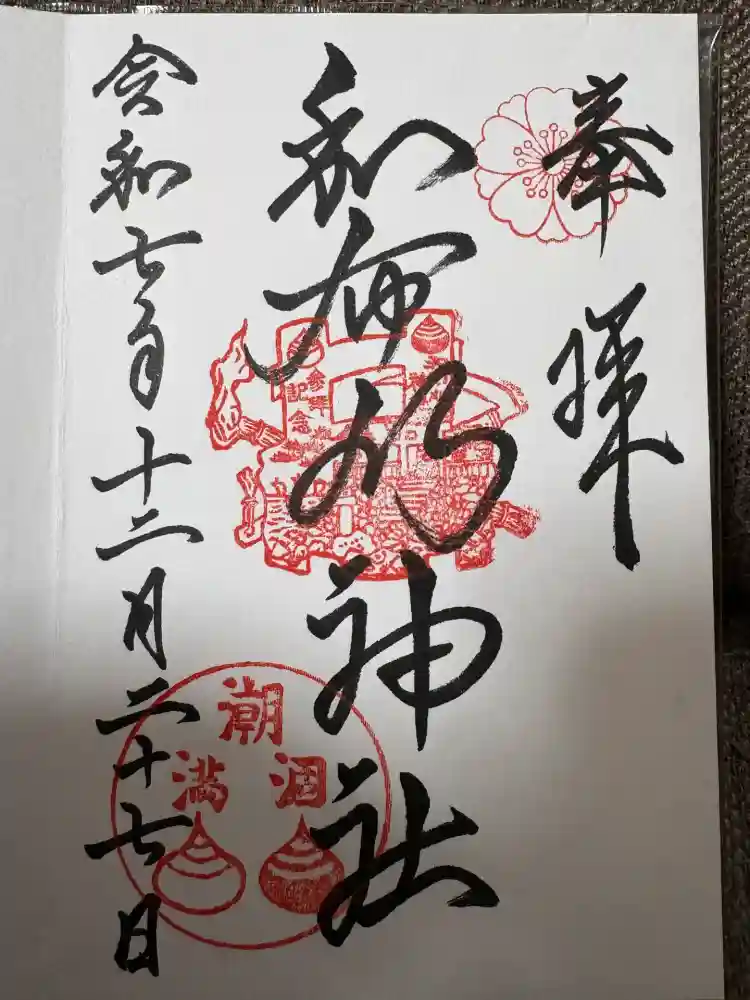 奉拝
和布刈神社
参拝
記念
潮
満
涸
令和七年十二月二十七日